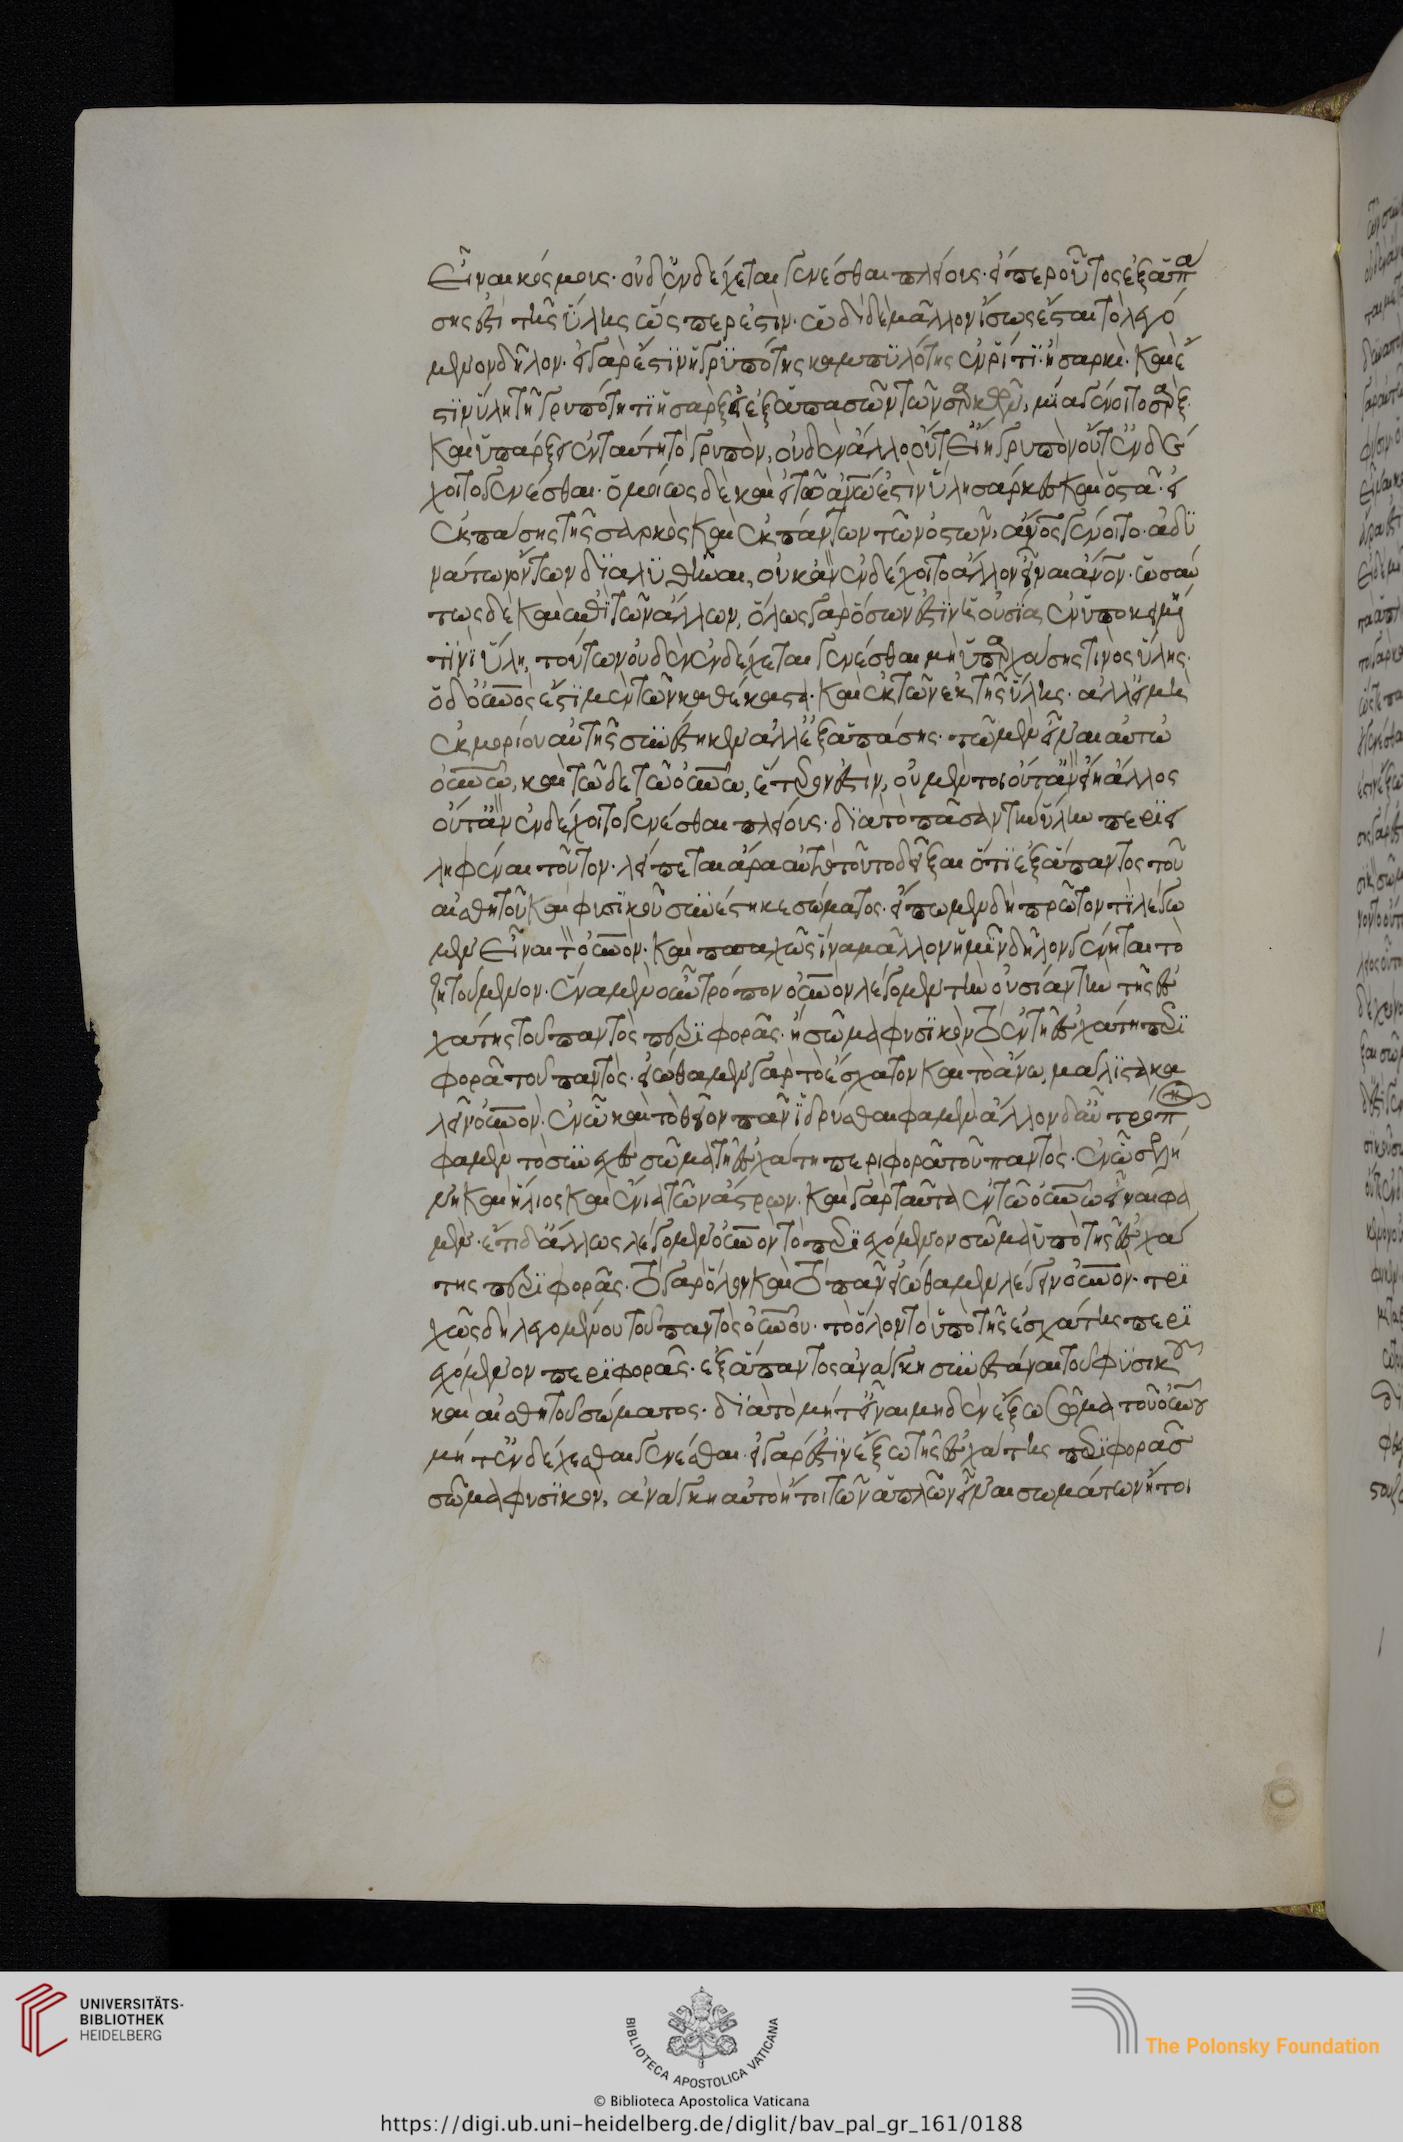 εἶναι κόσμους· οὐδ' ἐνδέχεται γενέσθαι πλείους· εἴπερ οὗτος ἐξ ἁπά
σης ἐστὶ τῆς ὕλης ὥσπερ ἐστίν· ὧδὶ δὲ μᾶλλον ἴσως ἔσται τὸ λεγό
μενον δῆλον· εἰ γὰρ ἔστιν ἡ γρυπότης καμπυλότης ἐν ῥινὶ ἢ σαρκὶ· καὶ ἔ
στιν ὕλη τῇ γρυπότητι ἡ σὰρξ εἰ ἐξ ἁπασῶν τῶν σαρκῶν, μία γένοιτο σὰρξ
καὶ ὑπάρξει ἐν ταύτῃ τὸ γρυπὸν, οὐδὲν ἄλλο οὔτ' εἴη γρυπὸν οὔτ' ἐνδέ
χοιτο γενέσθαι· ὁμοίως δὲ καὶ εἰ τῷ ἀνῶ ἐστὶν ὕλη σάρκες καὶ ὀστᾶ· εἰ
ἐκ πάσης τῆς σαρκὸς καὶ ἐκ πάντων τῶν ὀστῶν, ἄνος γένοιτο· ἀδυ
νάτων ὄντων διαλυθῆναι, οὐκ ἂν ἐνδέχοιτο ἄλλον εἶναι ἄνον· ὡσαύ
τως δὲ καὶ ἐπὶ τῶν ἄλλων, ὅλως γὰρ ὅσων ἐστὶν ἡ οὐσία ἐν ὑποκειμένῃ
τινὶ ὕλῃ, τούτων οὐδὲν ἐνδέχεται γενέσθαι μὴ ὑπαρχούσης τινὸς ὕλης·
ὁ δ' οὐνος ἔστι μὲν τῶν καθέκαστα· καὶ ἐκ τῶν ἐκ τῆς ὕλης· ἀλλ' εἰ μὴ
ἐκ μορίου αὐτῆς συνέστηκεν ἀλλ' ἐξ ἁπάσης· τῶ μὲν εἶναι αὐτῶ
οὐνῶ, καὶ τῶδε τῶ οὐνῶ, ἕτερον ἐστὶν, οὐ μέντοι οὔτ' ἂν εἴη ἄλλος
οὔτ' ἂν ἐνδέχοιτο γενέσθαι πλείους· διὰ τὸ πᾶσαν τὴν ὕλην περιει
ληφέναι τοῦτον· λείπεται ἄρα αὐτὸ τοῦτο δεῖξαι ὅτι ἐξ ἅπαντος τοῦ
αἰσθητοῦ καὶ φυσικοῦ συνέστηκε σώματος· εἴπωμεν δὴ πρῶτον τί λέγο
μεν εἶναι τὸ οὐνον· καὶ ποσαχῶς ἵνα μᾶλλον ἡμῖν δῆλον γένηται τὸ
ζητούμενον· ἕνα μὲν οὖν τρόπον οὐνον λέγομεν τὴν οὐσίαν τὴν τῆς ἐσ
χάτης τοῦ παντὸς περιφορᾶς· ἢ σῶμα φυσικὸν τὸ ἐν τῇ ἐσχάτῃ περι
φορᾷ τοῦ παντὸς· εἰώθαμεν γὰρ τὸ ἔσχατον καὶ τὸ ἄνω, μάλιστα κα
λεῖν οὐνον· ἐν ᾧ καὶ τὸ θεῖον πᾶν ἱδρύσθαι φαμὲν ἄλλον δ' αὖ τρόπ
φαμὲν τὸ συνεχὲς σῶμα τῇ ἐσχάτῃ περιφορᾷ τοῦ παντὸς· ἐν ᾧ σελή
νη καὶ ἥλιος καὶ ἔνια τῶν ἄστρων· καὶ γὰρ ταῦτα ἐν τῶ οὐνῶ εἶναι φα
μεν· ἔτι δ' ἄλλως λέγομεν οὐνον τὸ περιεχόμενον σῶμα ὑπὸ τῆς ἐσχά
της περιφορᾶς· τὸ γὰρ ὅλον καὶ τὸ πᾶν εἰώθαμεν λέγειν οὐνον· τρι
χῶς δὴ λεγομένου τοῦ παντὸς οὐνου· τὸ ὅλον τὸ ὑπὸ τῆς ἐσχάτης περι
εχόμενον περιφορᾶς· ἐξ ἅπαντος ἀνάγκη συνεστάναι τοῦ φυσικοῦ
καὶ αἰσθητοῦ σώματος· διὰ τὸ μήτ' εἶναι μηδὲν ἔξω σῶμα τοῦ οὐνου
μήτ' ἐνδέχεσθαι γενέσθαι· εἰ γὰρ ἐστὶν ἔξω τῆς ἐσχάτης περιφορᾶς
σῶμα φυσικὸν, ἀνάγκη αὐτὸ ἤτοι τῶν ἁπλῶν εἶναι σωμάτων ἤτοι
UNIVERSITÄTS-
BIBLIOTHEK
HEIDELBERG
BIBLIOTECA APOSTOLICA VATICANA
The Polonsky Foundation
© Biblioteca Apostolica Vaticana
https://digi.ub.uni-heidelberg.de/diglit/bav_pal_gr_161/0188